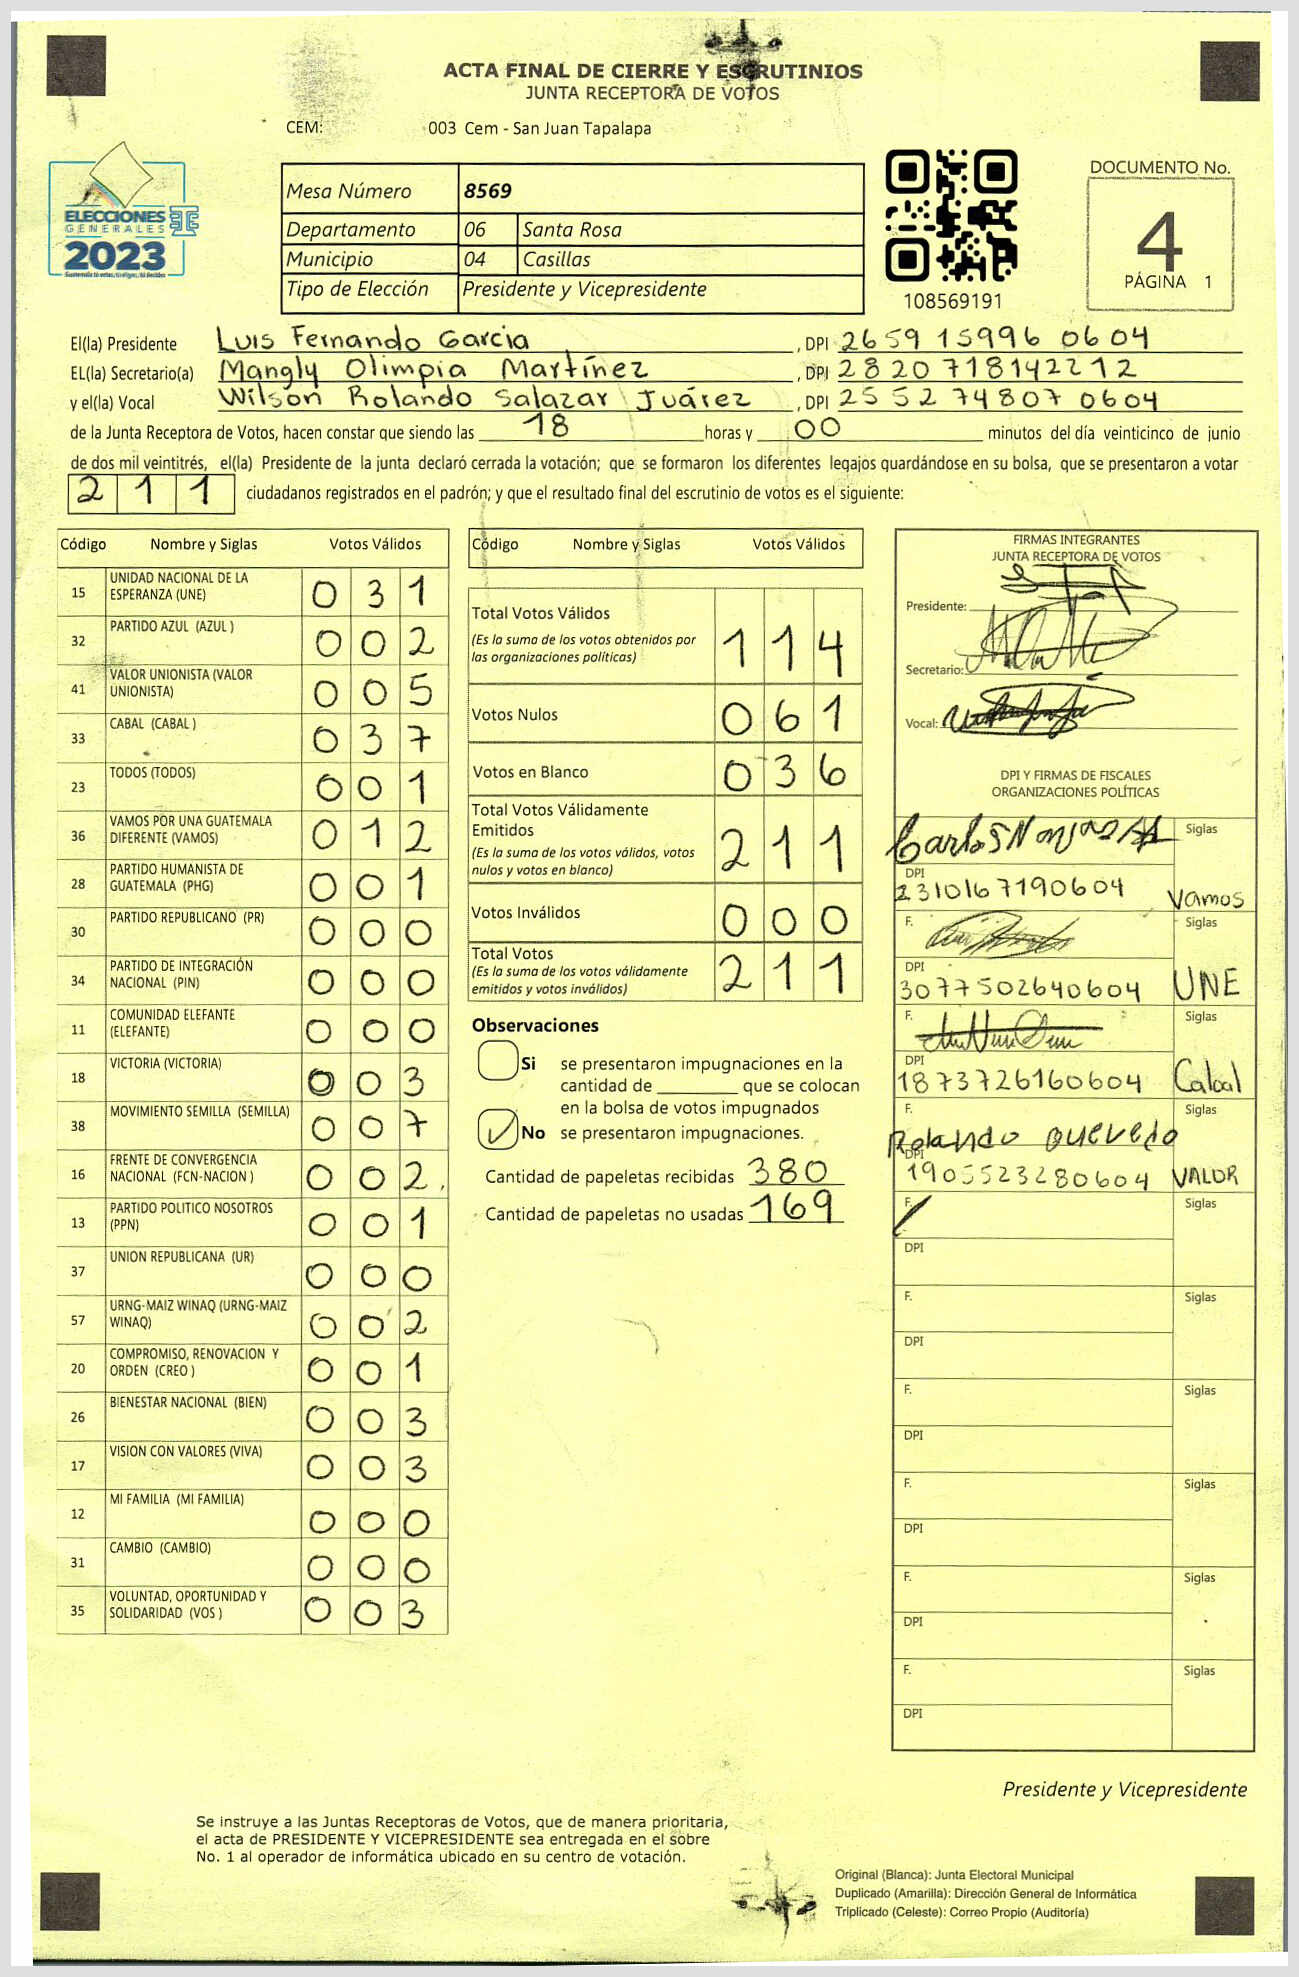 ACTA FINAL DE CIERRE Y ESCRUTINIOS
JUNTA RECEPTORA DE VOTOS
CEM: 003 Cem - San Juan Tapalapa
ELECCIONES
GENERALES
2023
Mesa Número 8569
Departamento 06 Santa Rosa
Municipio 04 Casillas
Tipo de Elección Presidente y Vicepresidente
108569191
DOCUMENTO No.
4
PÁGINA 1
El(la) Presidente Luis Fernando Garcia , DPI 2659 15996 0604
EL(la) Secretario(a) Mangly Olimpia Martínez , DPI 2820718142212
y el(la) Vocal Wilson Rolando Salazar Juárez , DPI 2552748070604
de la Junta Receptora de Votos, hacen constar que siendo las 18 horas y 00 minutos del día veinticinco de junio
de dos mil veintitrés, el(la) Presidente de la junta declaró cerrada la votación; que se formaron los diferentes legajos quardándose en su bolsa, que se presentaron a votar
211 ciudadanos registrados en el padrón; y que el resultado final del escrutinio de votos es el siguiente:
Código Nombre y Siglas Votos Válidos
15 UNIDAD NACIONAL DE LA ESPERANZA (UNE) 031
32 PARTIDO AZUL (AZUL ) 002
41 VALOR UNIONISTA (VALOR UNIONISTA) 005
33 CABAL (CABAL ) 037
23 TODOS (TODOS) 001
36 VAMOS POR UNA GUATEMALA DIFERENTE (VAMOS) 012
28 PARTIDO HUMANISTA DE GUATEMALA (PHG) 001
30 PARTIDO REPUBLICANO (PR) 000
34 PARTIDO DE INTEGRACIÓN NACIONAL (PIN) 000
11 COMUNIDAD ELEFANTE (ELEFANTE) 000
18 VICTORIA (VICTORIA) 003
38 MOVIMIENTO SEMILLA (SEMILLA) 007
16 FRENTE DE CONVERGENCIA NACIONAL (FCN-NACION ) 002
13 PARTIDO POLITICO NOSOTROS (PPN) 001
37 UNION REPUBLICANA (UR) 000
57 URNG-MAIZ WINAQ (URNG-MAIZ WINAQ) 002
20 COMPROMISO, RENOVACION Y ORDEN (CREO ) 001
26 BIENESTAR NACIONAL (BIEN) 003
17 VISION CON VALORES (VIVA) 003
12 MI FAMILIA (MI FAMILIA) 000
31 CAMBIO (CAMBIO) 000
35 VOLUNTAD, OPORTUNIDAD Y SOLIDARIDAD (VOS ) 003
Código Nombre y Siglas Votos Válidos
Total Votos Válidos 114
(Es la suma de los votos obtenidos por
las organizaciones políticas)
Votos Nulos 061
Votos en Blanco 036
Total Votos Válidamente
Emitidos 211
(Es la suma de los votos válidos, votos
nulos y votos en blanco)
Votos Inválidos 000
Total Votos 211
(Es la suma de los votos válidamente
emitidos y votos inválidos)
Observaciones
Si se presentaron impugnaciones en la
cantidad de ________ que se colocan
en la bolsa de votos impugnados
No se presentaron impugnaciones.
Cantidad de papeletas recibidas 380
Cantidad de papeletas no usadas 169
FIRMAS INTEGRANTES
JUNTA RECEPTORA DE VOTOS
Presidente:
Secretario:
Vocal:
DPI Y FIRMAS DE FISCALES
ORGANIZACIONES POLÍTICAS
Siglas
DPI
2310167190604 Vamos
F. Siglas
DPI
3077502640604 UNE
F. Siglas
DPI
1873726160604 Cabal
F. Siglas
Rolando Quevedo
DPI
1905523280604 VALOR
F. Siglas
DPI
F. Siglas
DPI
F. Siglas
DPI
F. Siglas
DPI
F. Siglas
DPI
F. Siglas
DPI
Presidente y Vicepresidente
Se instruye a las Juntas Receptoras de Votos, que de manera prioritaria,
el acta de PRESIDENTE Y VICEPRESIDENTE sea entregada en el sobre
No. 1 al operador de informática ubicado en su centro de votación.
Original (Blanca): Junta Electoral Municipal
Duplicado (Amarilla): Dirección General de Informática
Triplicado (Celeste): Correo Propio (Auditoría)